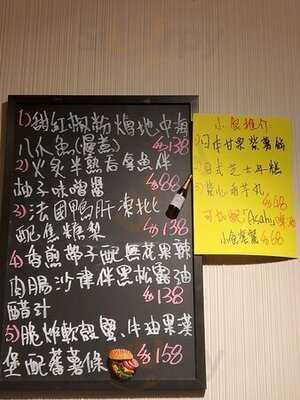 1) 甜紅椒粉焗地中海
八爪魚(慢煮) $138
2) 火炙半熟吞拿魚伴
柚子味啫喱 $88
3) 法國鴨肝凍批
配焦糖梨 $138
4) 香煎帶子配無花果辣
肉腸沙律伴黑松露油
醋汁 $138
5) 脆炸軟殼蟹、牛油果漢
堡配蕃薯條 $158
小食推介
日本甘栗紫薯餅
日式芝士丹糕
芋丸
$48
可加配「Asahi」啤酒
小食套餐 $68